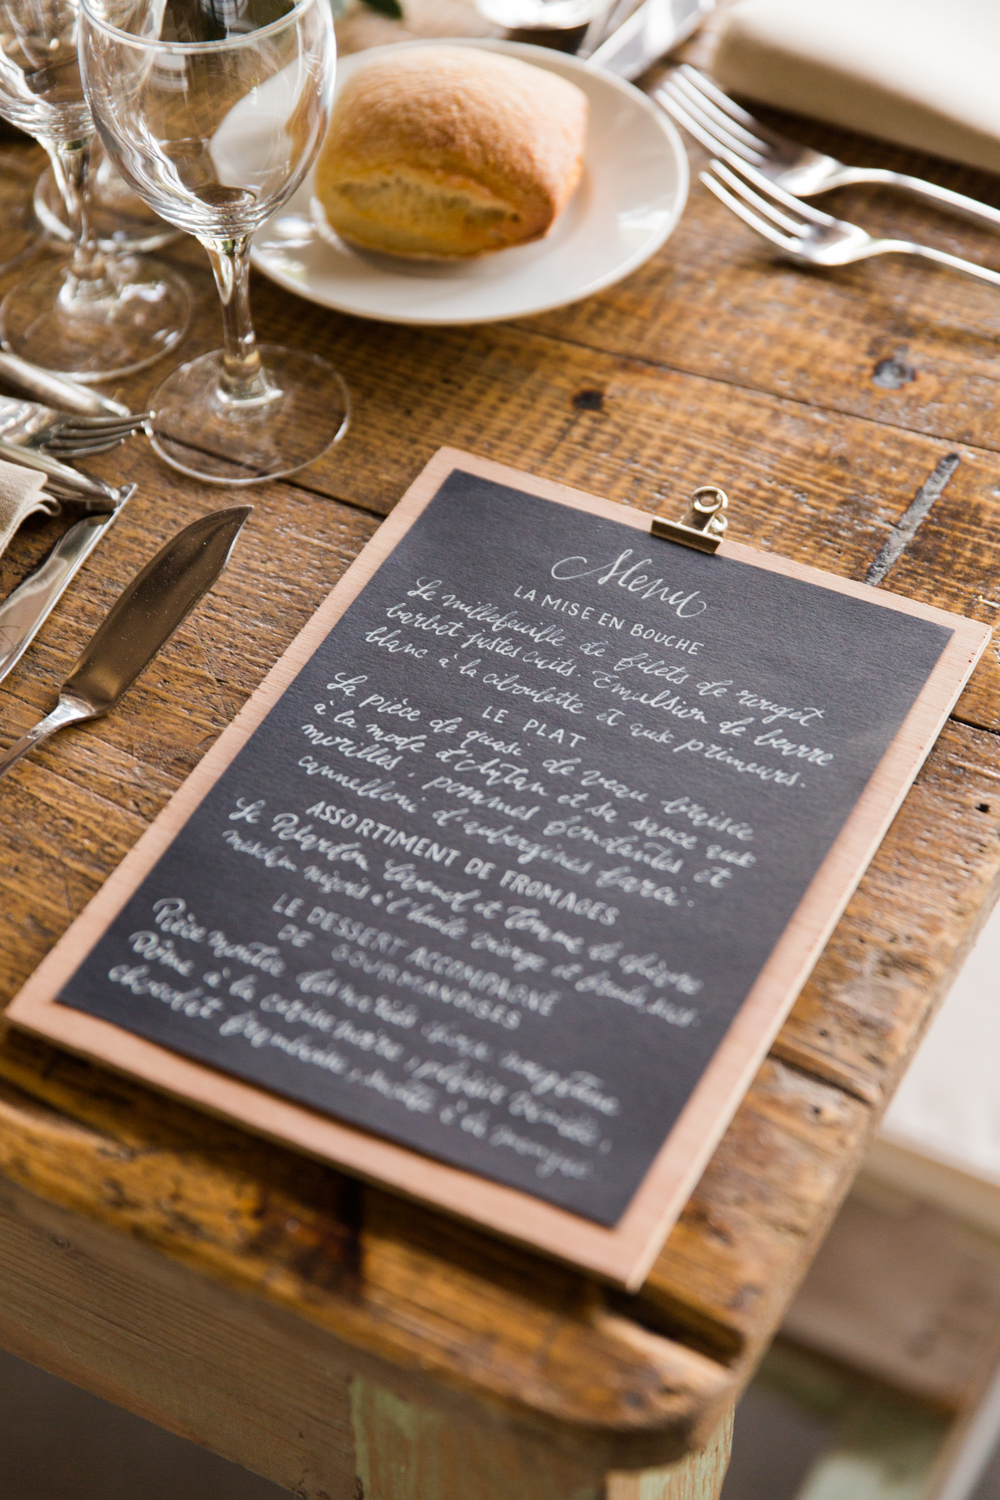 Menu
LA MISE EN BOUCHE
Le millefeuille de filets de rouget
barbet justes cuits. Emulsion de beurre
blanc à la ciboulette et aux primeurs.
LE PLAT
La pièce de quasi de veau braisée
à la mode d'Antan et sa sauce aux
morilles, pommes fondantes et
cannelloni d'aubergines farci.
ASSORTIMENT DE FROMAGES
Le Pélardon Cévenol et tomme de chèvre
à l'huile vierge et
LE DESSERT ACCOMPAGNÉ
DE GOURMANDISES
Pièce montée des mariés
Dôme à la cerise noire, vanille,
chocolat